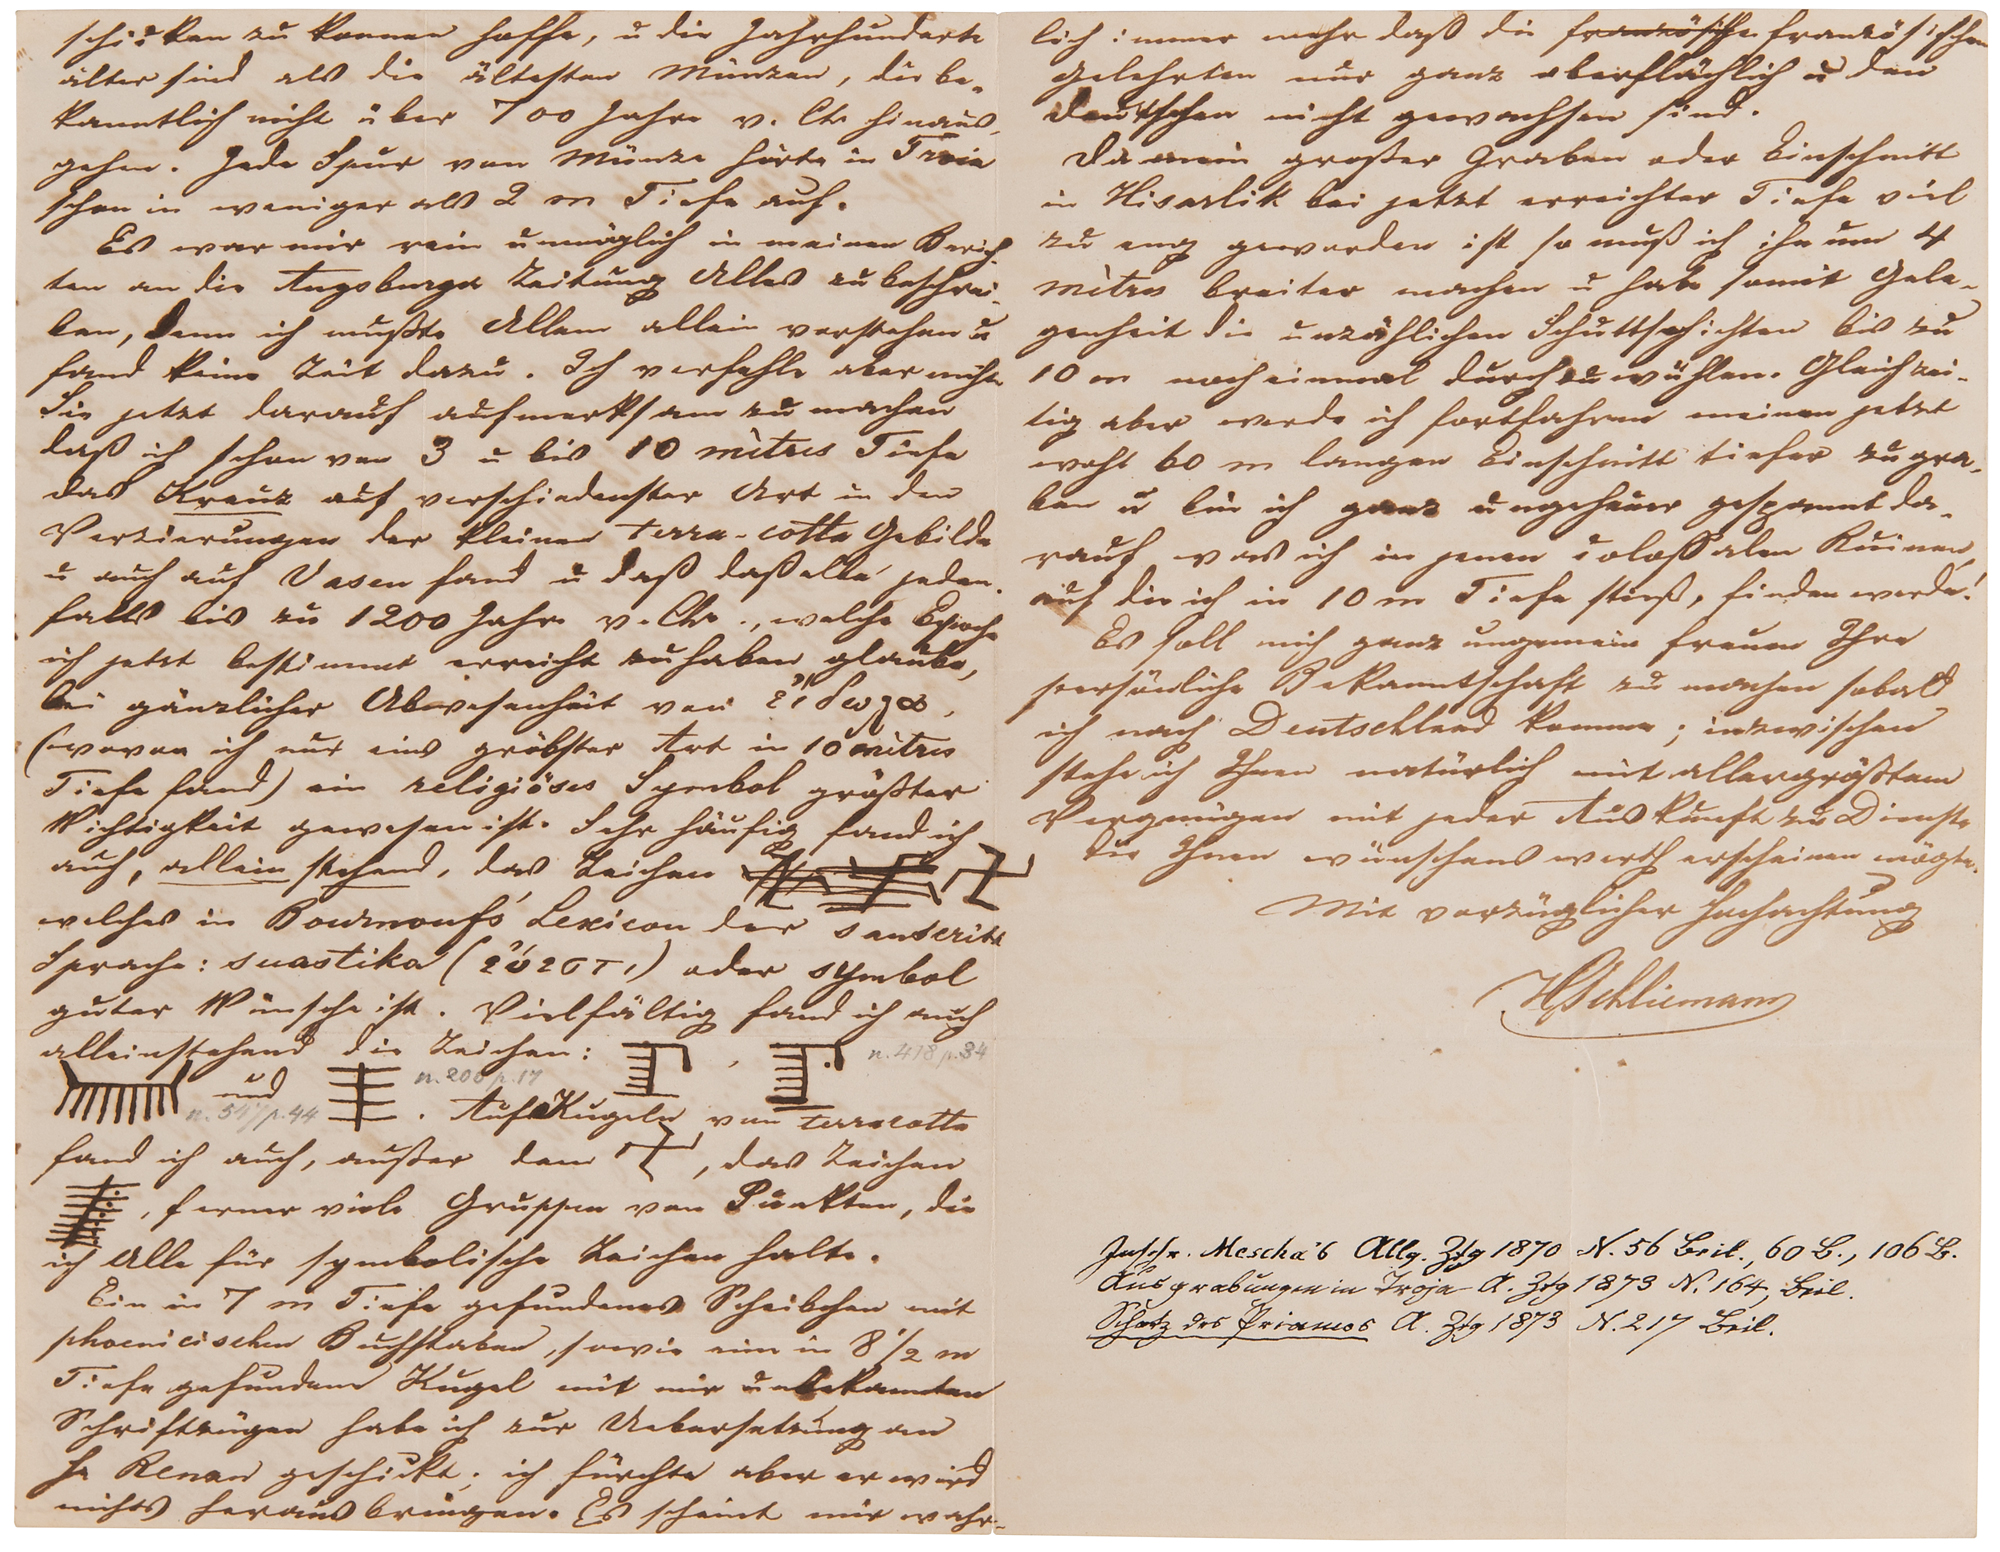 schicken zu können hoffe, u die Jahrhunderte
älter sind als die ältesten Münzen, die be-
kanntlich nicht über 700 Jahre v. Chr hinaus-
gehen. Jede Spur von Münze hörte in Troia
schon in weniger als 2 m Tiefe auf.
Es war mir rein unmöglich in meinen Berich-
ten an die Augsburger Zeitung Alles zu beschrei-
ben, denn ich mußte Allem allein vorstehen u
fand keine Zeit dazu. Ich verfehle aber nicht
Sie jetzt darauf aufmerksam zu machen
daß ich schon von 3 u bis 10 mètres Tiefe
das Kreuz auf verschiedenster Art in den
Verzierungen der kleinen terra-cotta Gebilde
u auch auf Vasen fand u daß daßelbe jeden-
falls bis zu 1200 Jahr v. Chr., welche Epoche
ich jetzt bestimmt erreicht zu haben glaube,
bei gänzlicher Abwesenheit von εἴδωλα,
(wovon ich nur eins gröbster Art in 10 mètres
Tiefe fand) ein religiöses Symbol größter
Wichtigkeit gewesen ist. Sehr häufig fand ich
auch, allein stehend, das Zeichen 卍
welches in Bournoufs Lexicon der sanscrit
Sprache: suastika (εὖ ἐστι) oder symbol
guter Wünsche ist. Vielfältig fand ich auch
alleinstehend die Zeichen: , n. 418 p. 34
und n. 547 p. 44 n. 200 p. 17 . Auf Kugeln von terracotta
fand ich auch, außer dem 卍, das Zeichen
, ferner viele Gruppen von Punkten, die
ich Alle für symbolische Zeichen halte.
Ein in 7 m Tiefe gefundenes Scheibchen mit
phoenicischen Buchstaben, sowie eine in 8 1/2 m
Tiefe gefundene Kugel mit mir unbekannten
Schriftzügen habe ich zur Uebersetzung an
Hr Renan geschickt; ich fürchte aber er wird
nichts heraus bringen. Es scheint mir wahr-
lich immer mehr daß die französische französischen
Gelehrten nur ganz oberflächlich u den
deutschen nicht gewachsen sind.
Da mein großer Graben oder Einschnitt
in Hisarlik bei jetzt erreichter Tiefe viel
zu eng geworden ist so muß ich ihn um 4
mètres breiter machen u habe somit Gele-
genheit die unzählichen Schuttschichten bis zu
10 m noch einmal durchzuwühlen. Gleichzei-
tig aber werde ich fortfahren meinen jetzt
wohl 60 m langen Einschnitt tiefer zu gra-
ben u bin ich ganz ungeheuer gespannt da-
rauf was ich in jenen colossalen Ruinen,
auf die ich in 10 m Tiefe stieß, finden werde!
Es soll mich ganz ungemein freuen Ihre
persönliche Bekanntschaft zu machen sobald
ich nach Deutschland komme; inzwischen
stehe ich Ihnen natürlich mit allergrößtem
Vergnügen mit jeder Auskunft zu Dienste
die Ihnen wünschenswerth erscheinen mögte.
Mit vorzüglicher Hochachtung
HSchliemann
Inschr. Mescha's Allg. Ztg 1870 N. 56 Beil., 60 B., 106 B.
Ausgrabungen in Troja A. Ztg 1873 N. 164, Beil.
Schatz des Priamos A. Ztg 1873 N. 217 Beil.